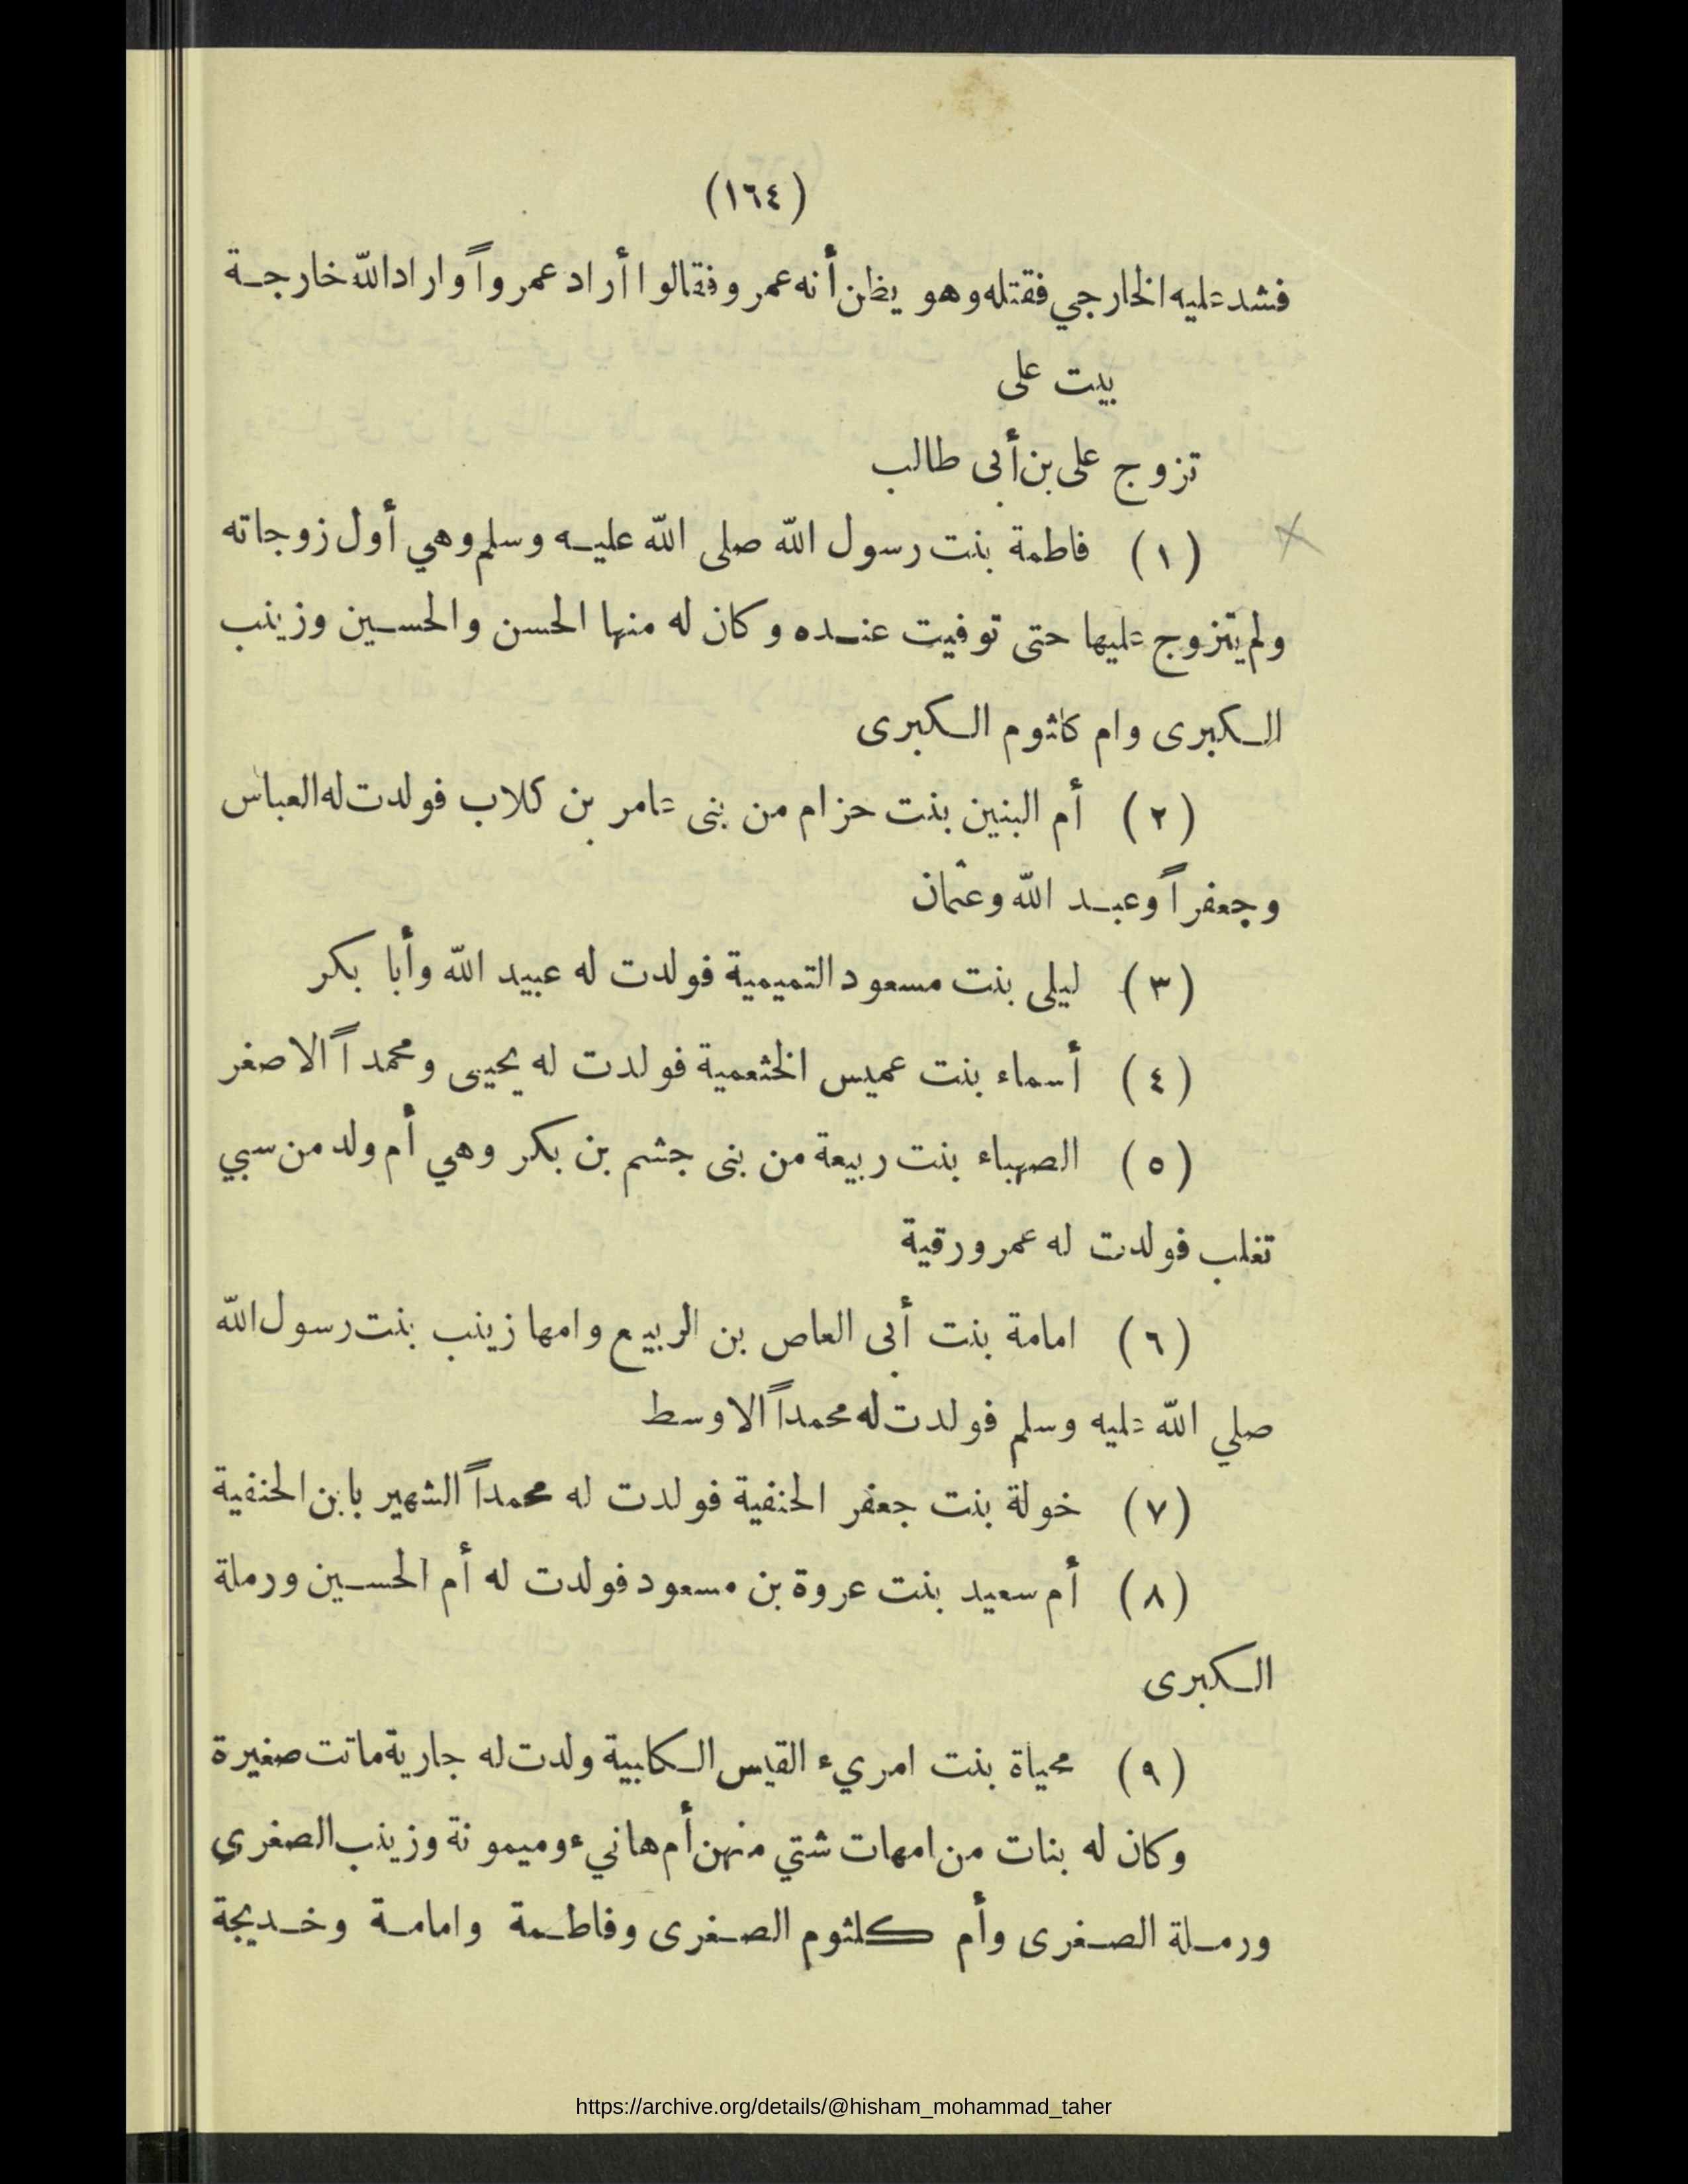 (١٦٤)
فشد عليه الخارجي فقتله وهو يظن أنه عمر وفقالوا أراد عمرواً واراد الله خارجة
بيت على
تزوج على بن أبى طالب
(١) فاطمة بنت رسول الله صلى الله عليه وسلم وهي أول زوجاته
ولم يتزوج عليها حتى توفيت عنده وكان له منها الحسن والحسين وزينب
الكبرى وام كلثوم الكبرى
(٢) أم البنين بنت حزام من بنى عامر بن كلاب فولدت له العباس
وجعفراً وعبد الله وعثمان
(٣) ليلى بنت مسعود التميمية فولدت له عبيد الله وأبا بكر
(٤) أسماء بنت عميس الخثعمية فولدت له يحيى ومحمداً الاصغر
(٥) الصهباء بنت ربيعة من بنى جشم بن بكر وهي أم ولد من سبي
تغلب فولدت له عمر ورقية
(٦) امامة بنت أبى العاص بن الربيع وامها زينب بنت رسول الله
صلي الله عليه وسلم فولدت له محمداً الاوسط
(٧) خولة بنت جعفر الحنفية فولدت له محمداً الشهير بابن الحنفية
(٨) أم سعيد بنت عروة بن مسعود فولدت له أم الحسين ورملة
الكبرى
(٩) محياة بنت امريء القيس الكابية ولدت له جارية ماتت صغيرة
وكان له بنات من امهات شتي منهن أم هانيء وميمونة وزينب الصغرى
ورملة الصغرى وأم كلثوم الصغرى وفاطمة وامامة وخديجة
https://archive.org/details/@hisham_mohammad_taher